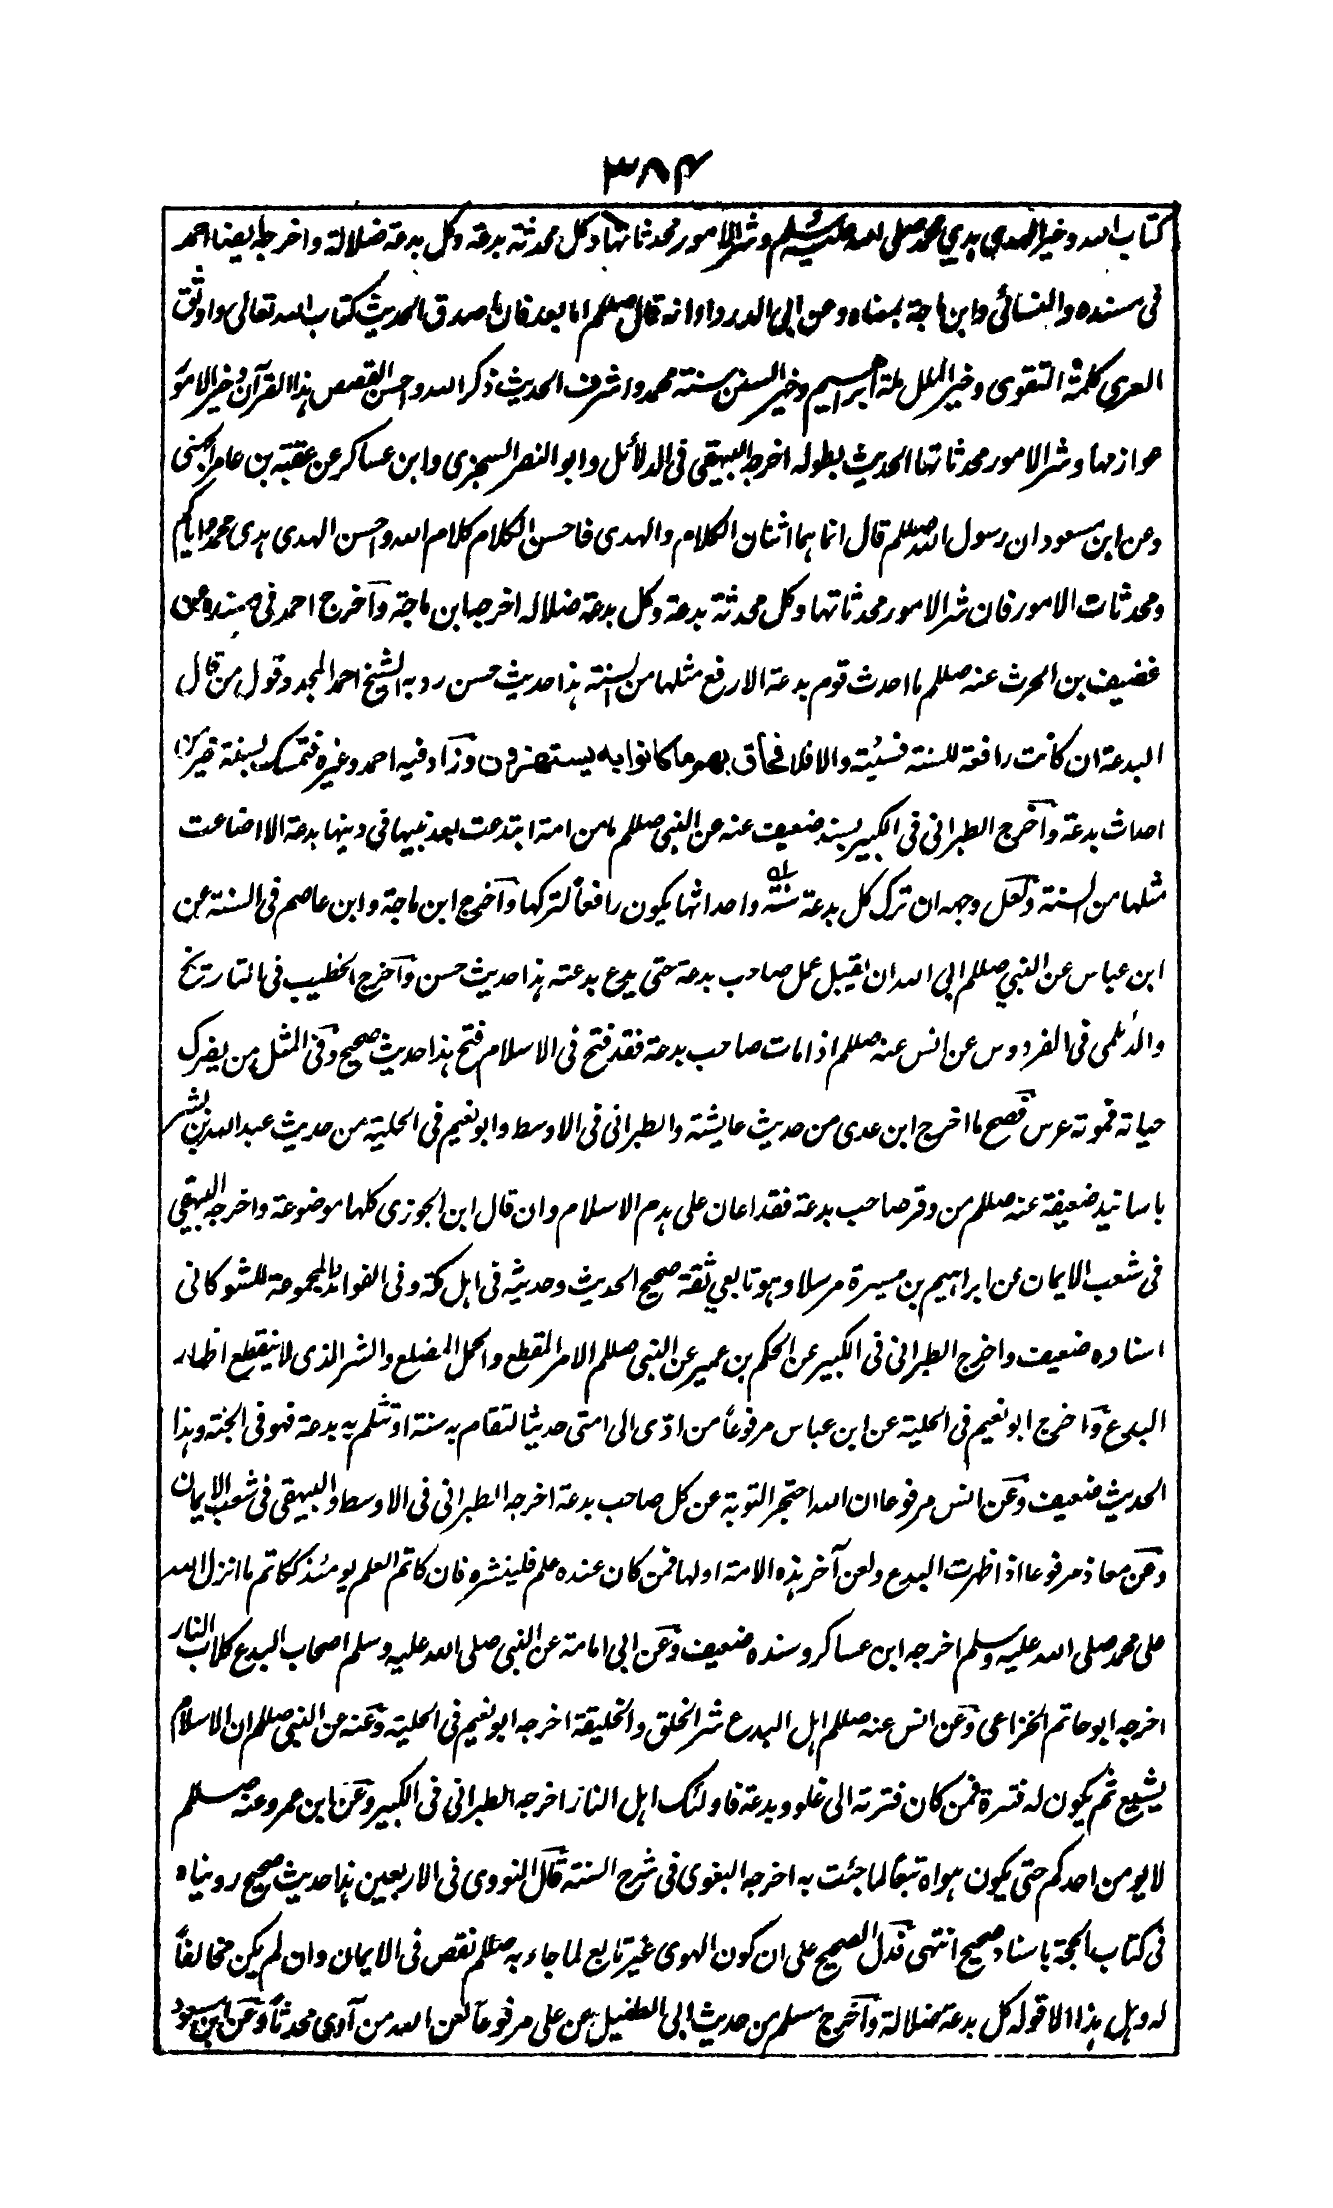 ۳۸۴
كتاب الله وخير الهدي هدي محمد صلى الله عليه وسلم وشر الامور محدثاتها وكل محدثة بدعة وكل بدعة ضلالة واخرجه ايضا احمد
فى مسنده والنسائى وابن ماجة بمعناه وعن ابى الدرداء انه قال صللم اما بعد فان اصدق الحديث كتاب الله تعالى واوثق
العرى كلمة التقوى وخير الملل ملة ابراهيم وخير السنن سنة محمد واشرف الحديث ذكر الله واحسن القصص هذا القرآن وخير الامور
عوازمها وشر الامور محدثاتها الحديث بطوله اخرجه البيهقى فى الدلائل وابو النصر السجزى وابن عساكر عن عقبة بن عامر الجهنى
وعن ابن مسعود ان رسول الله صللم قال انما هما اثنتان الكلام والهدى فاحسن الكلام كلام الله واحسن الهدى هدى محمد واياكم
ومحدثات الامور فان شر الامور محدثاتها وكل محدثة بدعة وكل بدعة ضلاله اخرجه ابن ماجة وآخرج احمد فى مسنده عن
غضيف بن الحرث عنه صللم ما احدث قوم بدعة الا رفع مثلها من السنة هذا حديث حسن رد به الشيخ احمد المجدد قول من قال
البدعة ان كانت رافعة للسنة فسيئة والا فلا فحاق بهم ما كانوا به يستهزؤن وزاد فيه احمد وغيره فتمسك بسنة خير من
احداث بدعة وآخرج الطبرانى فى الكبير بسند ضعيف عنه عن النبى صللم ما من امة ابتدعت بعد نبيها فى دينها بدعة الا اضاعت
مثلها من السنة ولعل وجهه ان ترك كل بدعة سنة واحداثها يكون رافعاً لتركها وآخرج ابن ماجة وابن عاصم فى السنة عن
ابن عباس عن النبي صللم ابى الله ان يقبل عمل صاحب بدعة حتى يدع بدعته هذا حديث حسن وآخرج الخطيب فى التاريخ
والديلمى فى الفردوس عن انس عنه صللم اذا مات صاحب بدعة فقد فتح فى الاسلام فتح هذا حديث صحيح وفى المثل من يضرك
حياته فموته عرس فصح ما اخرج ابن عدى من حديث عايشة والطبرانى فى الاوسط وابو نعيم فى الحلية من حديث عبد الله بن بشر
باسانيد ضعيفة عنه صللم من وقر صاحب بدعة فقد اعان على هدم الاسلام وان قال ابن الجوزى كلها موضوعة واخرجه البيهقى
فى شعب الايمان عن ابراهيم بن ميسرة مرسلا وهو تابعي ثقة صحيح الحديث وحديثه فى اهل مكة وفى الفوائد المجموعة للشوكانى
اسناده ضعيف واخرج الطبرانى فى الكبير عن الحكم بن عمير عن النبى صللم الامر المقطع والحمل المضلع والشر الذى لا ينقطع اظهار
البدع وآخرج ابو نعيم فى الحلية عن ابن عباس مرفوعاً من ادّى الى امتى حديثا لتقام به سنة او تثلم به بدعة فهو فى الجنة وهذا
الحديث ضعيف وعن انس مرفوعا ان الله احتجر التوبة عن كل صاحب بدعة اخرجه الطبرانى فى الاوسط والبيهقى فى شعب الايمان
وعن معاذ مرفوعا اذا ظهرت البدع ولعن آخر هذه الامة اولها فمن كان عنده علم فلينشره فان كاتم العلم يومئذ ككاتم ما انزل الله
على محمد صلى الله عليه وسلم اخرجه ابن عساكر وسنده ضعيف وعن ابى امامة عن النبى صلى الله عليه وسلم اصحاب البدع كلاب النار
اخرجه ابو حاتم الخزاعى وعن انس عنه صللم اهل البدع شر الخلق والخليقة اخرجه ابو نعيم فى الحلية وعنه عن النبى صللم ان الاسلام
يشيع ثم يكون له فترة فمن كان فترته الى غلو وبدعة فاولئك اهل النار اخرجه الطبرانى فى الكبير وعن ابن عمرو عنه صللم
لا يومن احدكم حتى يكون هواه تبعاً لما جئت به اخرجه البغوى فى شرح السنة قال النووى فى الاربعين هذا حديث صحيح رويناه
فى كتاب الحجة باسناد صحيح انتهى فدل الصحيح على ان كون الهوى غير تابع لما جاء به صللم نقص فى الايمان وان لم يكن مخالفاً
له وهل هذا الا قوله كل بدعة ضلالة وآخرج مسلم من حديث ابى الطفيل عن على مرفوعاً لعن الله من آوى محدثاً وعن ابن مسعود